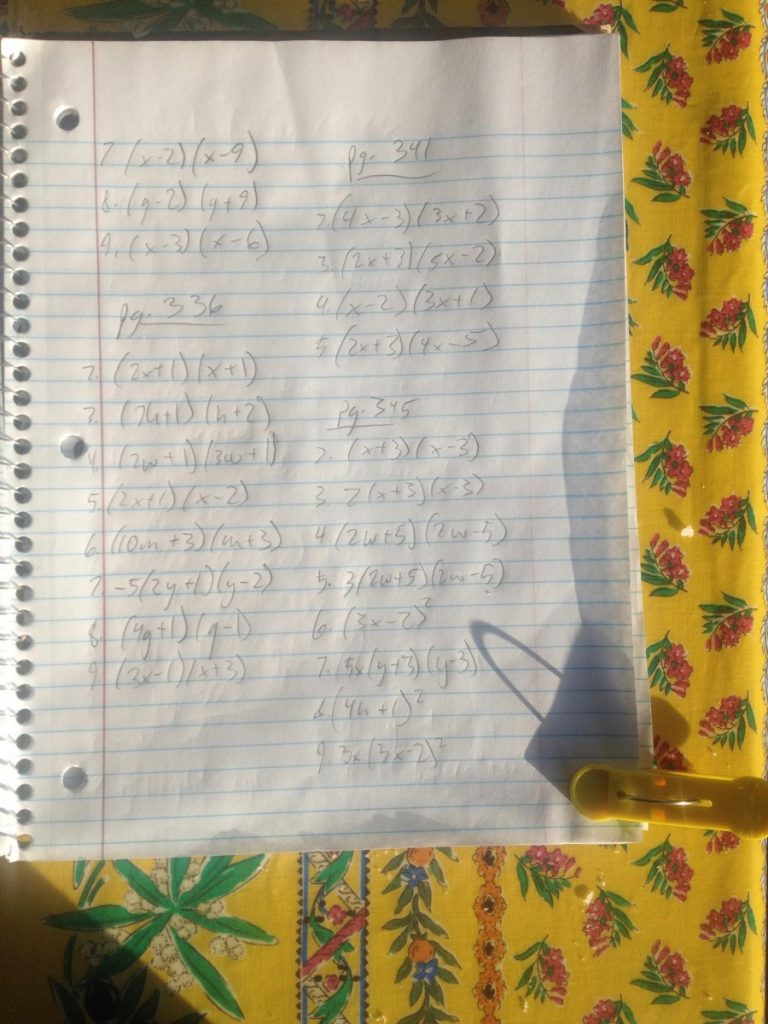 7 (x-2)(x-9)
8. (y-2) (y+9)
9. (x-3) (x-6)
pg. 336
2. (2x+1)(x+1)
3. (7h+1) (h+2)
4. (2w+1)(3w+1)
5. (2x+1)(x-2)
6. (10m+3)(m+3)
7. -5(2y+1)(y-2)
8. (4g+1)(g-1)
9. (3x-1)(x+3)
pg. 341
2. (4x-3)(3x+2)
3. (2x+3)(5x-2)
4. (x-2)(3x+1)
5 (2x+3)(4x-5)
pg. 345
2. (x+3)(x-3)
3. 2(x+3)(x-3)
4 (2w+5)(2w-5)
5. 3(2w+5)(2w-5)
6. (3x-2)²
7. 5x(y+3)(y-3)
8 (4h+1)²
9. 3x(3x-2)²